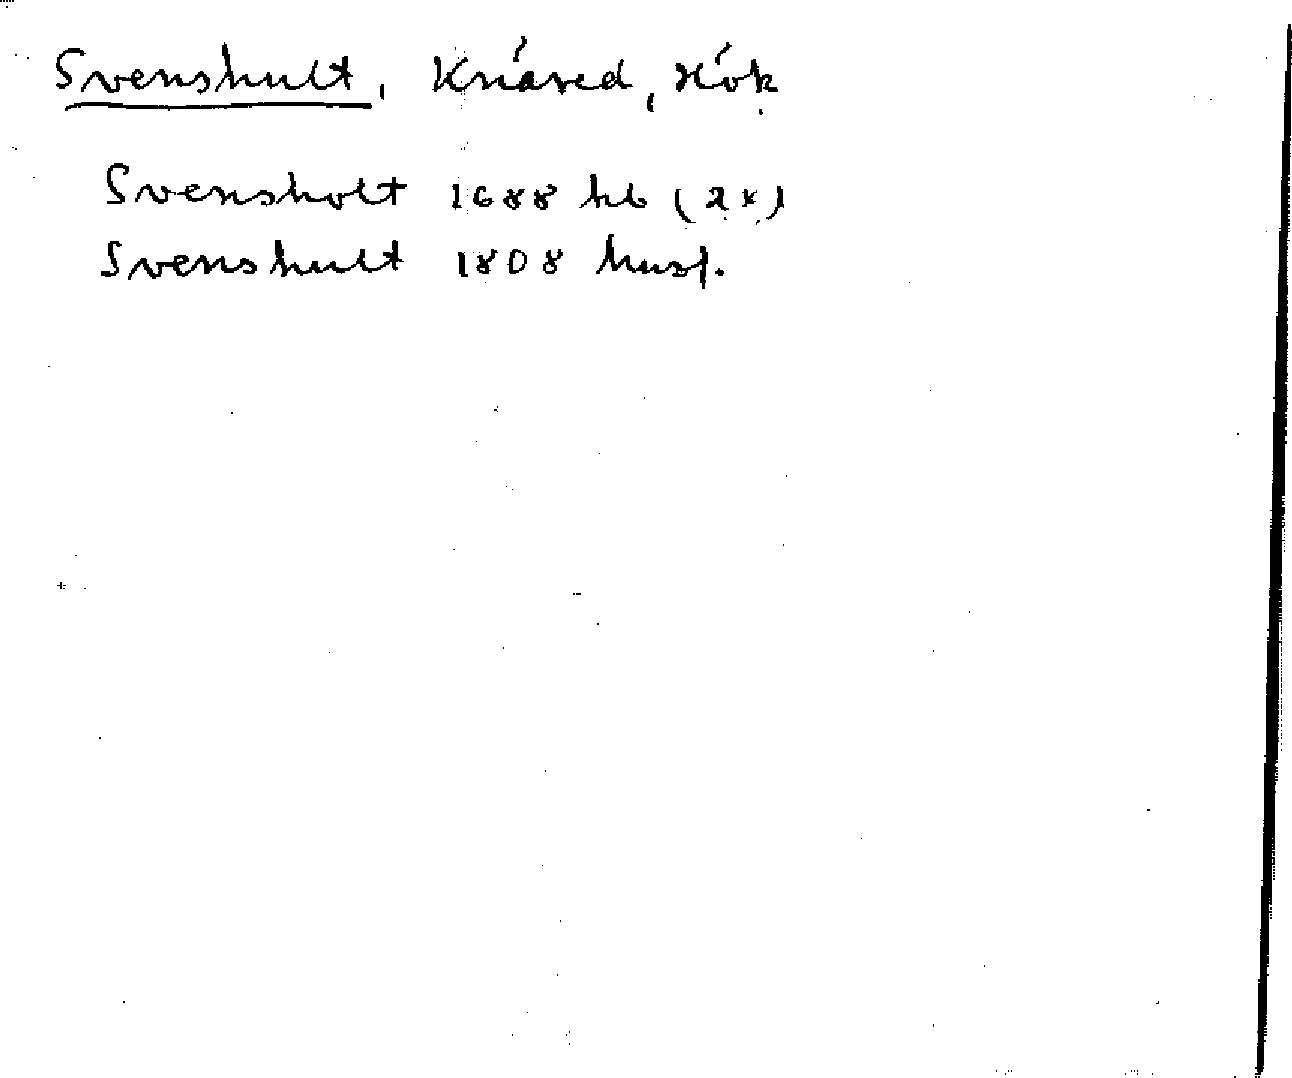 Svenshult, Knäred, Hök
Svensholt 1688 hb (2x)
Svenshult 1808 husf.